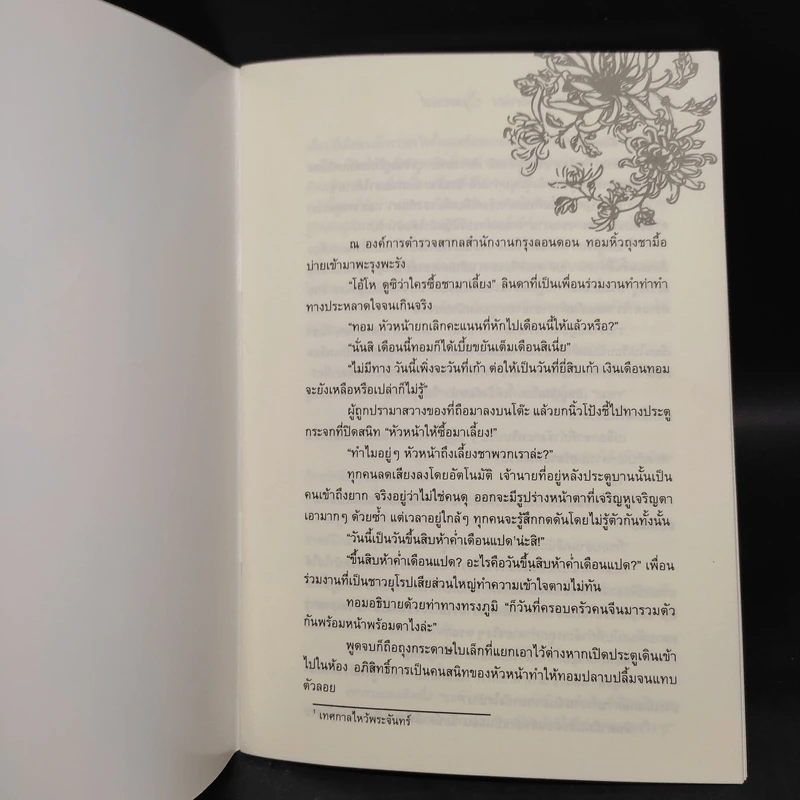 ณ องค์การตำรวจสากลสำนักงานกรุงลอนดอน ทอมหิ้วถุงชามื้อ
บ่ายเข้ามาพะรุงพะรัง
“โอ้โห ดูซิว่าใครซื้อชามาเลี้ยง” ลินดาที่เป็นเพื่อนร่วมงานทำท่าทำ
ทางประหลาดใจจนเกินจริง
“ทอม หัวหน้ายกเลิกคะแนนที่หักไปเดือนนี้ให้แล้วหรือ?”
“นั่นสิ เดือนนี้ทอมก็ได้เบี้ยขยันเต็มเดือนสิเนี่ย”
“ไม่มีทาง วันนี้เพิ่งจะวันที่เก้า ต่อให้เป็นวันที่ยี่สิบเก้า เงินเดือนทอม
จะยังเหลือหรือเปล่าก็ไม่รู้”
ผู้ถูกปรามาสวางของที่ถือมาลงบนโต๊ะ แล้วยกนิ้วโป้งชี้ไปทางประตู
กระจกที่ปิดสนิท “หัวหน้าให้ซื้อมาเลี้ยง!”
“ทำไมอยู่ๆ หัวหน้าถึงเลี้ยงชาพวกเราล่ะ?”
ทุกคนลดเสียงลงโดยอัตโนมัติ เจ้านายที่อยู่หลังประตูบานนั้นเป็น
คนเข้าถึงยาก จริงอยู่ว่าไม่ใช่คนดุ ออกจะมีรูปร่างหน้าตาที่เจริญหูเจริญตา
เอามากๆ ด้วยซ้ำ แต่เวลาอยู่ใกล้ๆ ทุกคนจะรู้สึกกดดันโดยไม่รู้ตัวกันทั้งนั้น
“วันนี้เป็นวันขึ้นสิบห้าค่ำเดือนแปด¹น่ะสิ!”
“ขึ้นสิบห้าค่ำเดือนแปด? อะไรคือวันขึ้นสิบห้าค่ำเดือนแปด?” เพื่อน
ร่วมงานที่เป็นชาวยุโรปเสียส่วนใหญ่ทำความเข้าใจตามไม่ทัน
ทอมอธิบายด้วยท่าทางทรงภูมิ “ก็วันที่ครอบครัวคนจีนมารวมตัว
กันพร้อมหน้าพร้อมตาไงล่ะ”
พูดจบก็ถือถุงกระดาษใบเล็กที่แยกเอาไว้ต่างหากเปิดประตูเดินเข้า
ไปในห้อง อภิสิทธิ์การเป็นคนสนิทของหัวหน้าทำให้ทอมปลาบปลื้มจนแทบ
ตัวลอย
¹ เทศกาลไหว้พระจันทร์